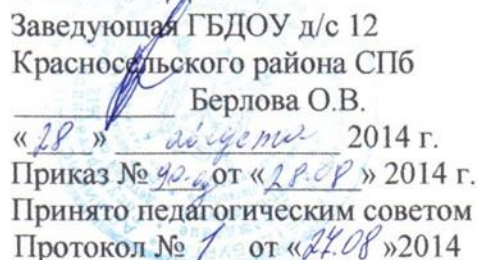 Заведующая ГБДОУ д/с 12
Красносельского района СПб
__________ Берлова О.В.
« 28 » августа 2014 г.
Приказ № от « 28.08 » 2014 г.
Принято педагогическим советом
Протокол № 1 от «27.08 »2014